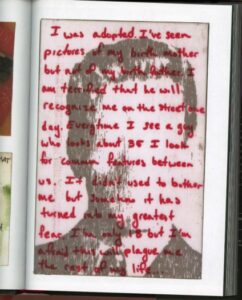 I was adopted. I've seen
pictures of my birth mother
but not of my birth father. I
am terrified that he will
recognize me on the street one
day. Everytime I see a guy
who looks about 35 I look
for common features between
us. It didn't used to bother
me but somehow it has
turned into my greatest
fear. I'm only 18 but I'm
afraid this will plague me
the rest of my life...